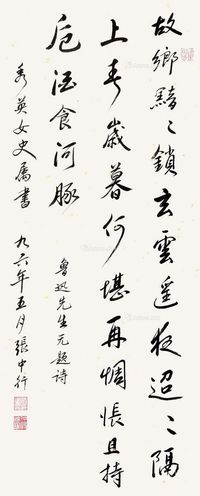 故鄉黯黯鎖玄雲遙夜迢迢隔
上春歲暮何堪再惆悵且持
卮酒食河豚
魯迅先生無題詩
秀英女史屬書
九六年五月張中行